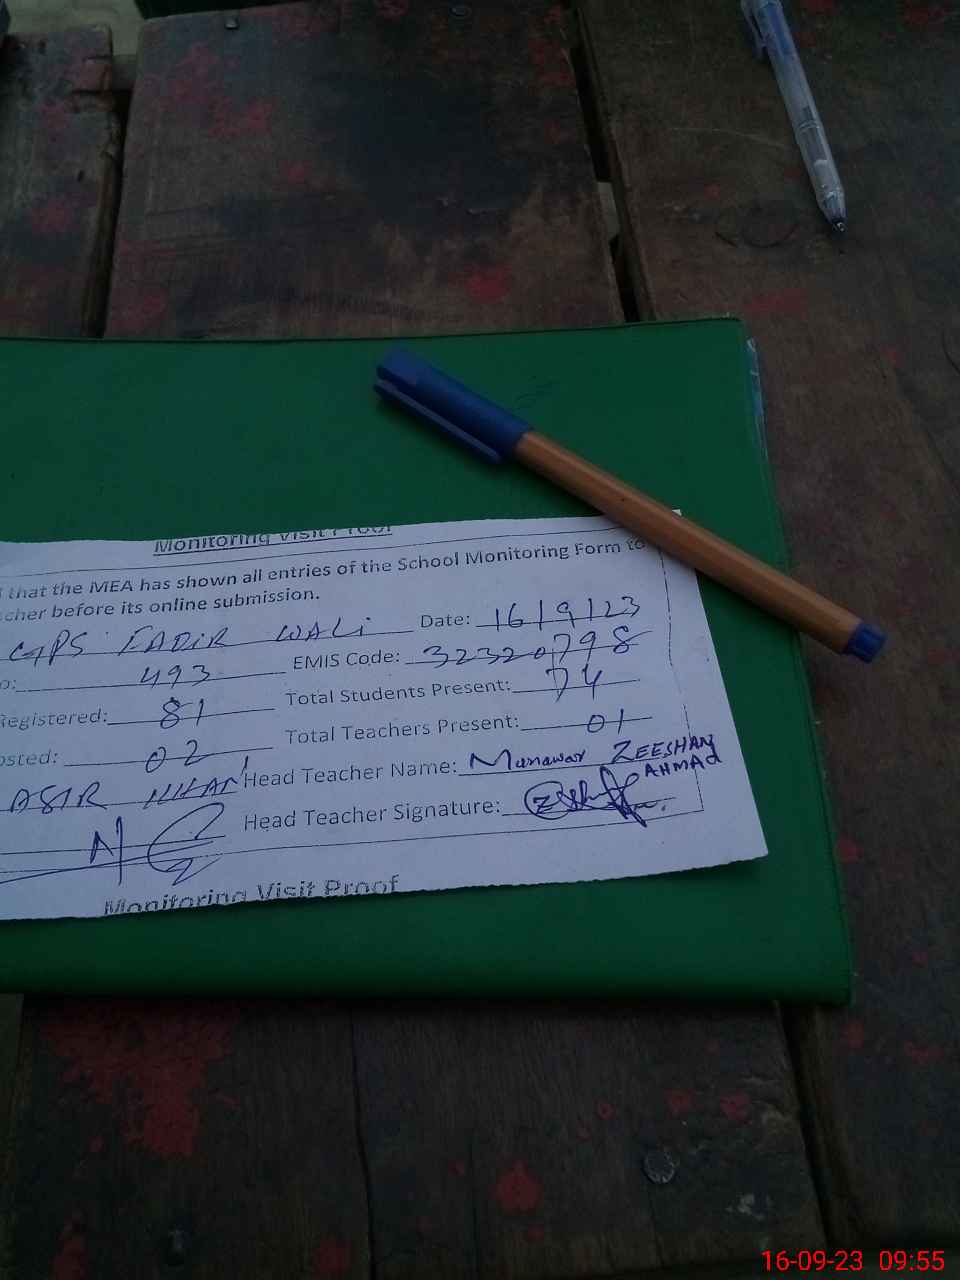 Monitoring Visit Proof
that the MEA has shown all entries of the School Monitoring Form to
cher before its online submission.
GPS FADIR WALI Date: 16/9/23
o: 493 EMIS Code: 32320798
Registered: 81 Total Students Present: 74
osted: 02 Total Teachers Present: 01
ASIR KHAN Head Teacher Name: Munawar ZEESHAN
AHMAd
Head Teacher Signature:
Monitoring Visit Proof
16-09-23 09:55